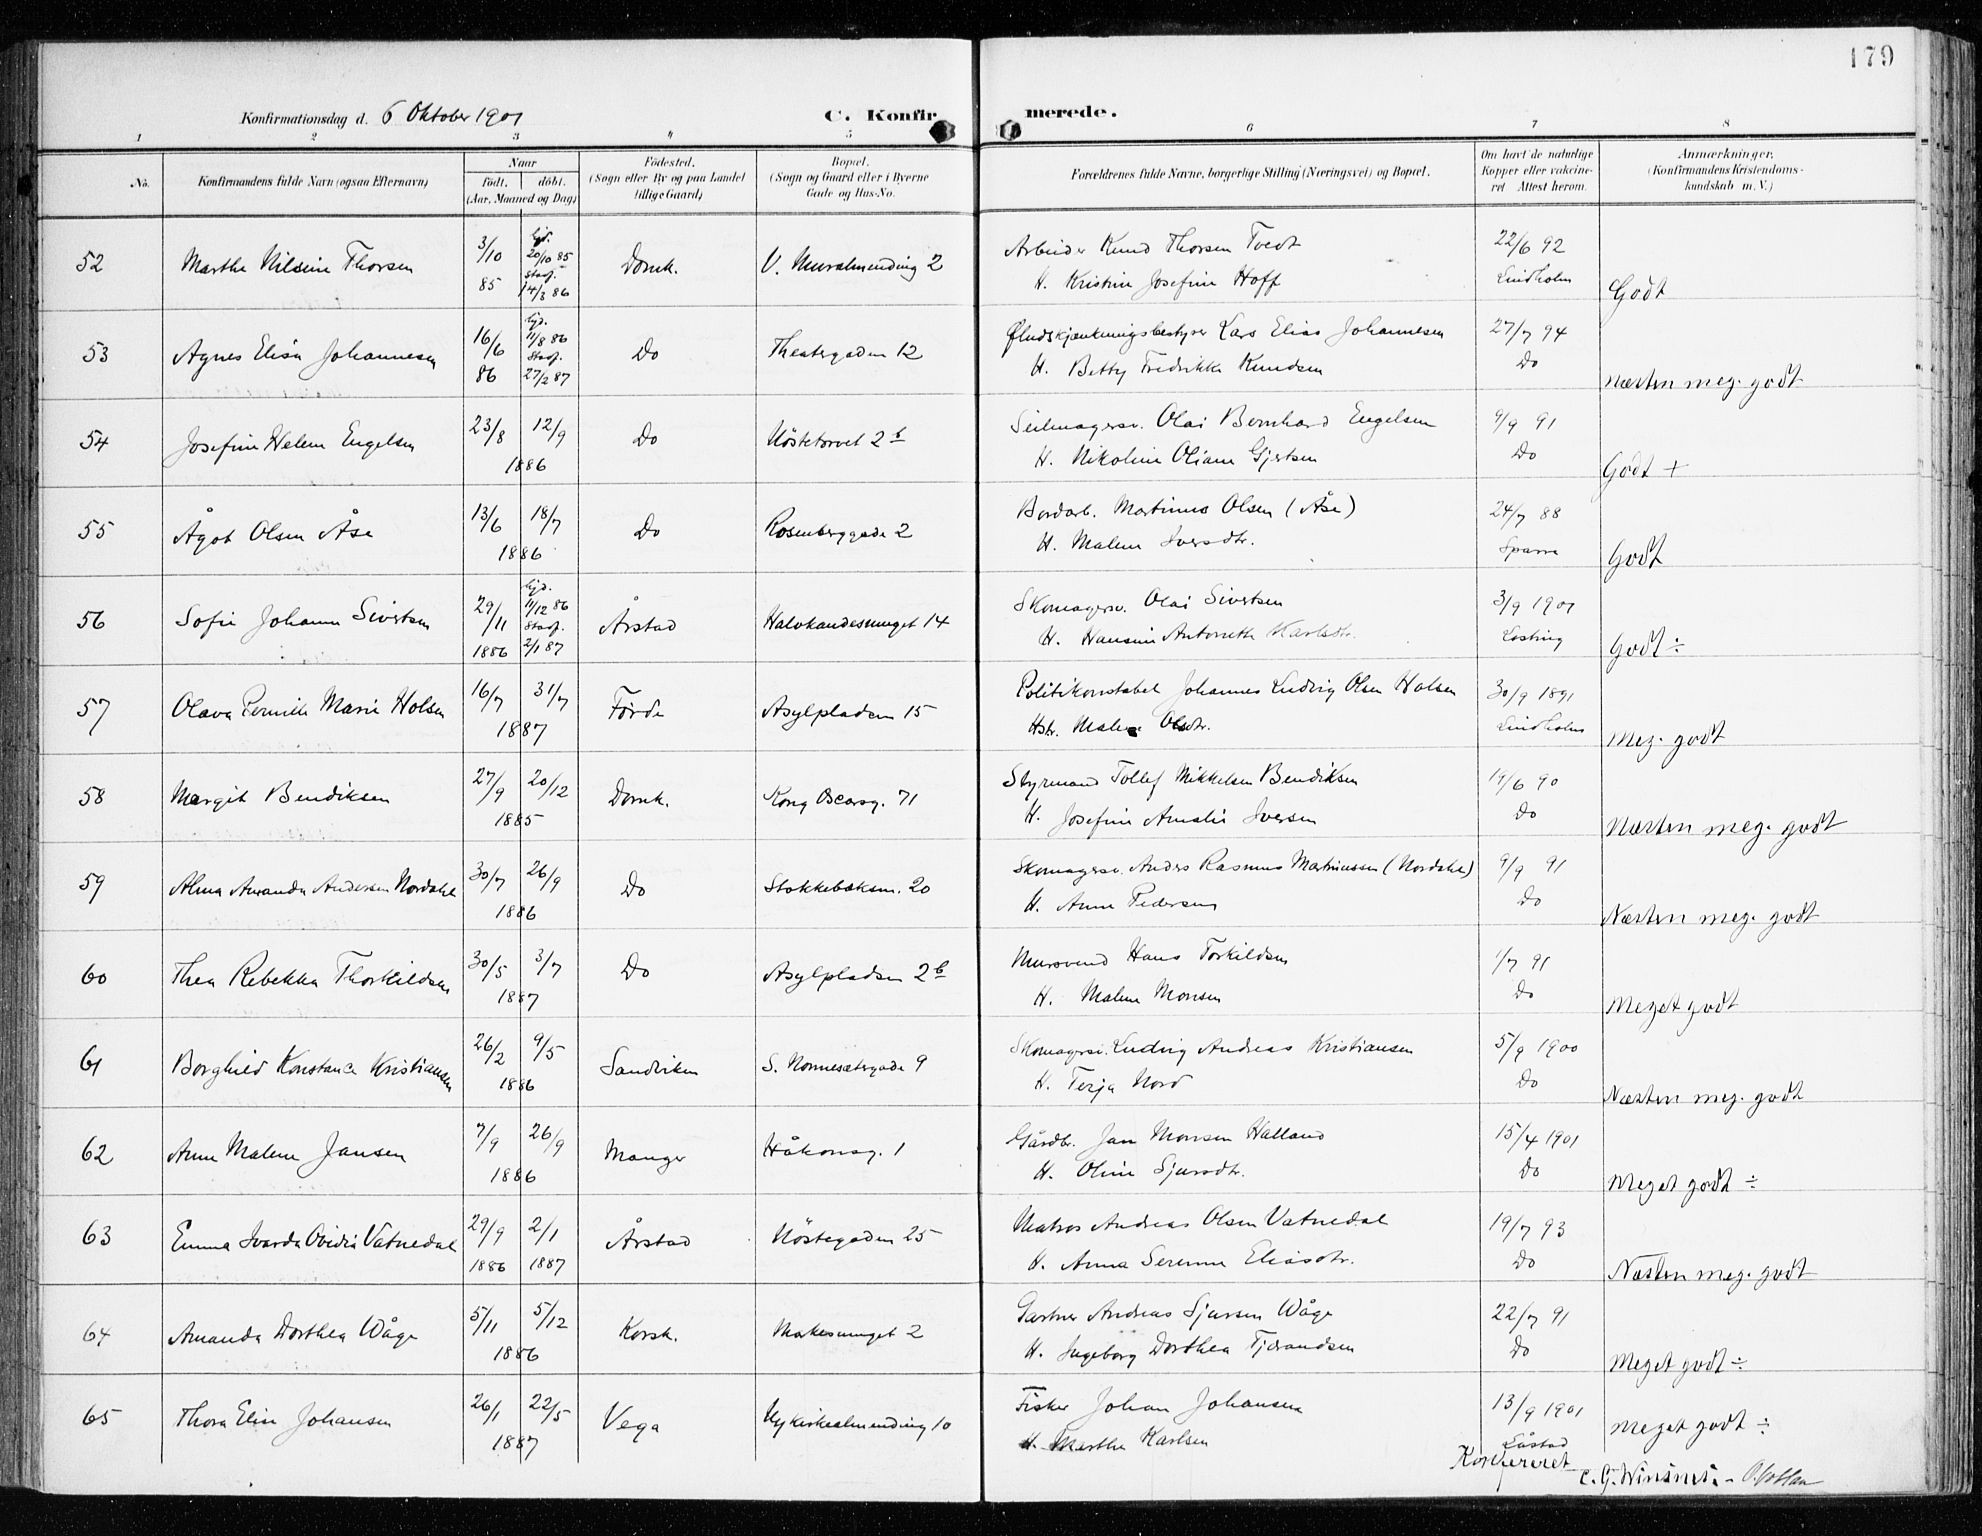 179
Konfirmationsdag d. 6 Oktober 1901
C. Konfirmerede.
1 2 3 4 5 6 7 8
No.
Konfirmandens fulde Navn (ogsaa Efternavn)
Naar
født. døbt.
(Aar, Maaned og Dag)
Fødested.
(Sogn eller By og paa Landet
tillige Gaard)
Bopæl.
(Sogn og Gaard eller i Byerne
Gade og Hus-No.
Forældrenes fulde Navne, borgerlige Stilling (Næringsvei) og Bopæl.
Om havt de naturlige
Kopper eller vakcine-
ret Attest herom.
Anmærkninger.
(Konfirmandens Kristendoms-
kundskab m. V.)
52 Marthe Nilsine Thorsen 3/10 85 hjd. 20/10 85 stadf. 14/3 86 Domk. V. Muralmending 2 Arbeider Knud Thorsen Tvedt 22/6 92
H. Kristine Josefine Hoff Lindholm Godt
53 Agnes Elisa Johannesen 16/6 86 hjd. 11/8 86 Stadf. 27/2 87 Do Theatergaden 12 Øludskjænkningsbestyrer Lars Elias Johannesen 27/7 94
H. Betty Fredrikke Knudsen Do Næsten meg. godt
54 Josefine Helene Engelsen 23/8 12/9 1886 Do Nøstetorvet 2 b Seilmagersv. Olai Bernhard Engelsen 9/9 91
H. Nikoline Oliane Gjertsen Do Godt +
55 Ågot Olsen Åse 13/6 18/7 1886 Do Rosenberggade 2 Bordarb. Martinus Olsen (Åse) 24/7 88
H. Malene Iversdtr. Sparre Godt
56 Sofie Johanne Sivertsen 29/11 1886 hjd. 11/12 86 Stadf. 2/1 87 Årstad Halvkandesmuget 14 Skomagersv. Olai Sivertsen 3/9 1901
H. Hansine Antonette Karlsdtr. Godt ÷
57 Olava Pernille Marie Holsen 16/7 31/7 1887 Førde Asylpladsen 15 Politikonstabel Johannes Ludvig Olsen Holsen 30/9 1891
Hstr. Malene Olsdtr. Lindholm Meg. godt
58 Margit Bendiksen 27/9 20/12 1885 Domk. Kong Oscarsg. 71 Styrmand Tollef Mikkelsen Bendiksen 19/6 90
H. Josefine Amalie Iversen Do Næsten meg. godt
59 Alma Amanda Andersen Nordahl 30/7 26/9 1886 Do Stokkebæksm. 20 Skomagersv. Anders Rasmus Martinussen (Nordahl) 9/9 91
H. Anne Pedersen Do Næsten meg. godt
60 Thea Rebekka Thorkildsen 30/5 3/7 1887 Do Asylpladsen 2 b Mursvend Hans Torkildsen 1/7 91
H. Malene Monsen Do Meget godt
61 Borghild Konstance Kristiansen 26/2 9/5 1886 Sandviken S. Nonnesætergade 9 Skomagersv. Ludvig Andreas Kristiansen 5/9 1900
H. Terja Nord Do Næsten meg. godt
62 Anne Malene Jansen 7/9 26/9 1886 Manger Håkonsg. 1 Gårdbr. Jan Monsen Halland 15/4 1901
H. Oline Sjursdtr. Do Meget godt ÷
63 Emma Ivarda Ovidia Vatnedal 29/9 1886 2/1 1887 Årstad Nøstegaden 25 Matros Andreas Olsen Vatnedal 19/7 93
H. Anna Serenne Eliasdtr. Do Næsten meg. godt
64 Amanda Dorthea Wåge 5/11 5/12 1886 Korsk. Makesmuget 2 Gartner Andreas Sjursen Wåge 22/7 91
H. Ingeborg Dorthea Tjerandsen Do Meget godt ÷
65 Thora Elise Johansen 26/1 22/5 1887 Vega Nykirkealmending 10 Fisker Johan Johansen 13/9 1901
H. Marthe Karlsen Meget godt ÷
Konfereret
C. G. Winsnes. -